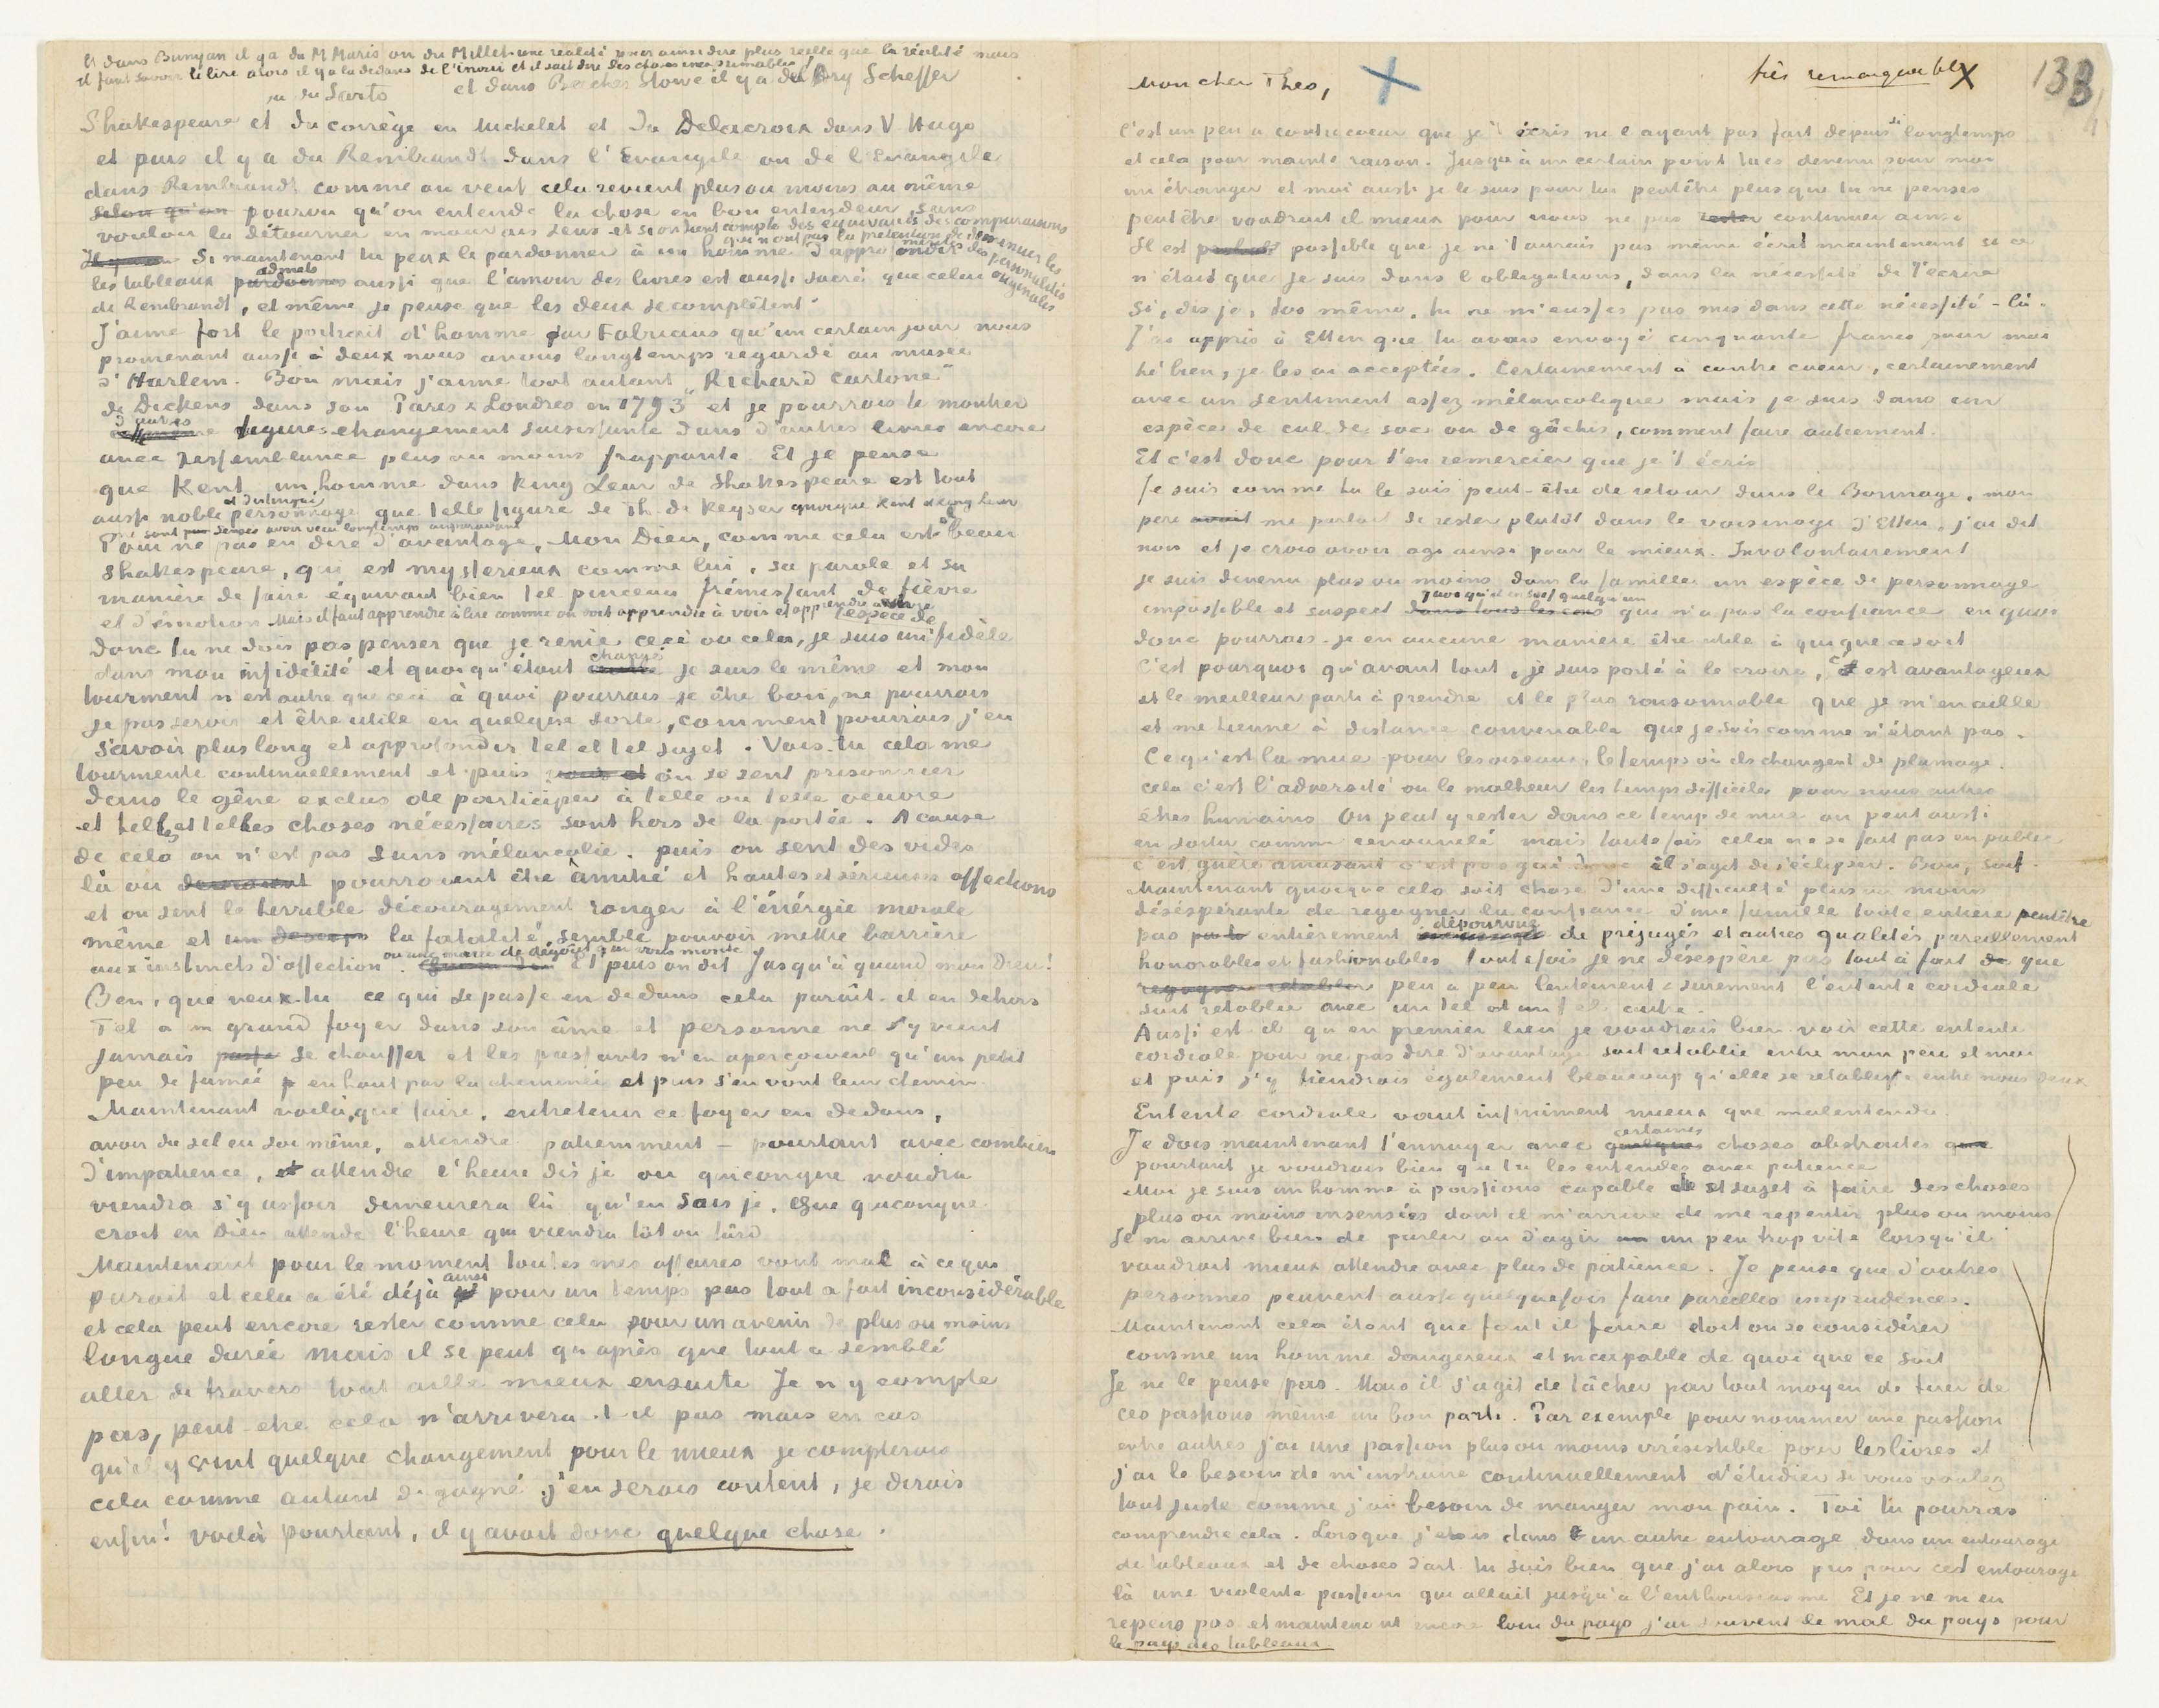 Et dans Bunyan il y a du M Maris ou du Millet une realité pour ainsi dire plus réelle que la réalité mais
il faut savoir le lire alors il y a là dedans de l'inouï et il sait dire des choses inexprimables
et dans Beecher Stowe il y a de l'Ary Scheffer
ou du Sarto
Shakespeare et du corrège en Michelet et du Delacroix dans V Hugo
et puis il y a du Rembrandt dans l'Evangile ou de l'Evangile
dans Rembrandt comme on veut cela revient plus ou moins au même
selon qu'on pourvu qu'on entende la chose en bon entendeur sans
vouloir la détourner en mauvais sens et si on tient compte des équivalents des comparaisons
qui n'ont pas la prétention de diminuer les
mérites des personnalités
originales
Si maintenant tu peux le pardonner à un homme d'approfondir
les tableaux admets aussi que l'amour des livres est aussi sacré que celui
de Rembrandt, et même je pense que les deux se complètent.
J'aime fort le portrait d'homme par Fabricius qu'un certain jour nous
promenant aussi à deux nous avons longtemps regardé au musée
d'Harlem. Bon mais j'aime tout autant „Richard Cartone”
de Dickens dans son Paris & Londres en 1793” et je pourrais te montrer
d'autres figures étrangement saisissante dans d'autres livres encore
avec ressemblance plus ou moins frappante. Et je pense
que Kent un homme dans King Lear de Shakespeare est tout
et distingué
aussi noble personnage que telle figure de Th. de Keyser quoique Kent et King Lear
sont censés avoir vécu longtemps auparavant
Pour ne pas en dire d'avantage, Mon Dieu, comme cela est beau
Shakespeare, qui est mysterieux comme lui, sa parole et sa
manière de faire équivaut bien tel pinceau frémissant de fièvre
et d'émotion Mais il faut apprendre à lire comme on doit apprendre à voir et apprendre à vivre
l'espèce de
donc tu ne dois pas penser que je renie ceci ou cela, je suis un fidèle
changé
dans mon infidélité et quoiqu'étant je suis le même et mon
tourment n'est autre que ceci à quoi pourrais-je être bon, ne pourrais
je pas servir et être utile en quelque sorte, comment pourrais j'en
savoir plus long et approfondir tel et tel sujet. Vois-tu cela me
tourmente continuellement et puis on se sent prisonnier
dans le gêne exclus de participer à telle ou telle oeuvre
et telles et telles choses nécessaires sont hors de la portée. A cause
de cela on n'est pas sans mélancolie. puis on sent des vides
là ou devraient pourraient être amitié et hautes et sérieuses affections
et on sent le terrible découragement ronger à l'énérgie morale
même et la fatalité semble pouvoir mettre barrière
ou une maree de dégoût qui vous monte
aux instincts d'affection. Et puis on dit Jusqu'à quand mon Dieu!
Ben, que veux-tu ce qui se passe en dedans cela paraît-il en dehors
Tel a un grand foyer dans son âme et personne ne s'y vient
jamais se chauffer et les passants n'en aperçoivent qu'un petit
peu de fumée en haut par la cheminée et puis s'en vont leur chemin.
Maintenant voilà que faire, entretenir ce foyer en dedans,
avoir du sel en soi même, attendre patiemment – pourtant avec combien
d'impatience, et attendre l'heure dis je ou quiconque voudra
viendra s'y asseoir demeurera là qu'en sais je. Que quiconque
croit en Dieu attende l'heure qui viendra tôt ou tard
Maintenant pour le moment toutes mes affaires vont mal à ce qui
ainsi
parait et cela a été déjà pour un temps pas tout a fait inconsidérable
et cela peut encore rester comme cela pour un avenir de plus ou moins
longue durée mais il se peut qu'après que tout a semblé
aller de travers tout aille mieux ensuite Je n'y compte
pas, peut-etre cela n'arrivera-t-il pas mais en cas
qu'il y vint quelque changement pour le mieux je compterais
cela comme autant de gagné j'en serais content, je dirais
enfin! voilà pourtant, il y avait donc quelque chose.
Mon cher Theo,
très remarquable
133
c'est un peu à contrecoeur que je t'écris ne l'ayant pas fait depuis si longtemps
et cela pour mainte raison. Jusqu'à un certain point tu es devenu pour moi
un étranger et moi aussi je le suis pour toi peutêtre plus que tu ne penses
peutêtre voudrait il mieux pour nous ne pas rester continuer ainsi
Il est probab possible que je ne t'aurais pas même écrit maintenant si ce
n'était que je suis dans l'obligations, dans la nécessité de t'ecrire
Si, dis je, toi même, tu ne m'eusses pas mis dans cette nécessité-là.
J'ai appris à Etten que tu avais envoyé cinquante francs pour moi
hé bien, je les ai acceptées. Certainement à contre coeur, certainement
avec un sentiment assez mélancolique mais je suis dans un
espèce de cul de sac ou de gâchis, comment faire autrement.
Et c'est donc pour t'en remercier que je t'écris
Je suis comme tu le sais peut-être de retour dans le Borinage, mon
père avait me parlait de rester plutôt dans le voisinage d'Etten, j'ai dit
non et je crois avoir agi ainsi pour le mieux. Involontairement
je suis devenu plus ou moins dans la famille un espèce de personnage
quoi qu'il en soit quelqu'un
impossible et suspect dans tous les cas qui n'a pas la confiance en quoi
donc pourrais-je en aucune manière être utile à qui que ce soit
C'est pourquoi qu'avant tout, je suis porté à le croire, c'est avantageux
et le meilleur parti à prendre et le plus raisonnable que je m'en aille
et me tienne à distance convenable que je sois comme n'étant pas.
Ce qu'est la mue pour les oiseaux, le temps où ils changent de plumage
cela c'est l'adversité ou le malheur les temps difficiles pour nous autres
êtres humains On peut y rester dans ce temp de mue on peut aussi
en sortir comme renouvelé mais toutefois cela ne se fait pas en public
c'est guère amusant c'est pas gai donc il s'agit de s'éclipser. Bon, soit.
Maintenant quoique cela soit chose d'une difficulté plus ou moins
désésperante de regagner la confiance d'une famille toute entière peutêtre
dépourvue
pas entièrement de préjugés et autres qualités pareillement
honorables et fashionables toutefois je ne désespère pas tout à fait de que
regagner retablir peu a peu lentement & surement l'entente cordiale
soit retablie avec un tel et un tel autre.
Aussi est-il qu'en premier lieu je voudrais bien voir cette entente
cordiale pour ne pas dire d'avantage soit retablie entre mon père et moi
et puis j'y tiendrais également beaucoup qu'elle se retablisse entre nous deux
Entente cordiale vaut infiniment mieux que malentendu.
certaines
Je dois maintenant t'ennuyer avec quelques choses abstraites que
pourtant je voudrais bien que tu les entendes avec patience
Moi je suis un homme à passions capable de et sujet à faire des choses
plus ou moins insensées dont il m'arrive de me repentir plus ou moins
Il m'arrive bien de parler ou d'agir un peu trop vite lorsqu'il
vaudrait mieux attendre avec plus de patience. Je pense que d'autres
personnes peuvent aussi quelquefois faire pareilles imprudences.
Maintenant cela étant que faut il faire doit on se considérer
comme un homme dangereux et incapable de quoi que ce soit
Je ne le pense pas. Mais il s'agit de tâcher par tout moyen de tirer de
ces passions même un bon parti. Par exemple pour nommer une passion
entre autres j'ai une passion plus ou moins irrésistible pour les livres et
j'ai le besoin de m'instruire continuellement d'étudier si vous voulez
tout juste comme j'ai besoin de manger mon pain. Toi tu pourras
comprendre cela. Lorsque j'etais dans un autre entourage dans un entourage
de tableaux et de choses d'art tu sais bien que j'ai alors pris pour cet entourage
là une violente passion qui allait jusqu'à l'enthousiasme Et je ne m'en
repens pas et maintenant encore loin du pays j'ai souvent le mal du pays pour
le pays des tableaux